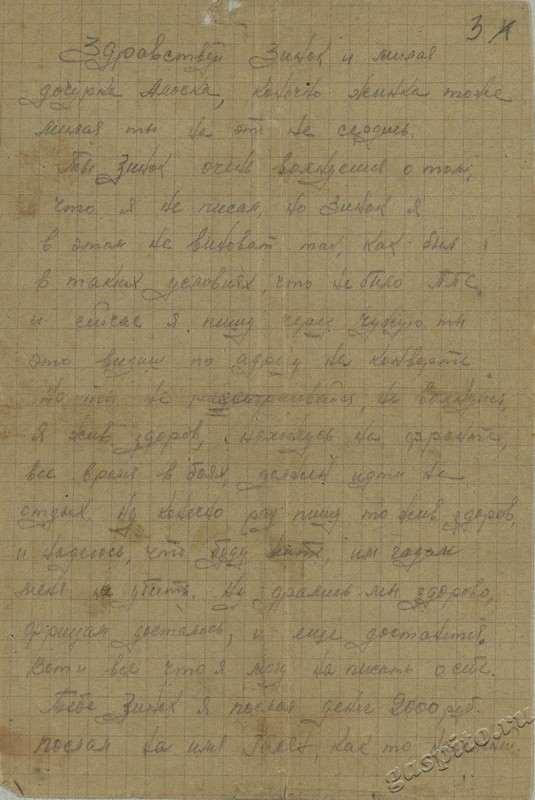 3
Здравствуй Зинок и милая
дочурка Алоска, конечно жинка тоже
милая ты на это не сердись.
Ты Зинок очень волнуешся о том,
что я не писал, но Зинок я
в этом не виноват так, как был
в таких условиях, что не было ППС,
и сейчас я пишу через чужую ты
это видиш по адресу на конверте
Но ты не расстраивайся, не волнуйся,
Я жив здоров, нахожусь на фронте,
все время в боях, должен идти на
отдых. Ну конечно раз пишу то жив здоров,
и надеюсь, что буду жить, им гадам
меня не убить. Но дрались мы здорово,
фрицам досталось, и еще достанется.
Вот и все что я могу на писать о себе.
Тебе Зинок я послал денег 2000 руб.
послал на имя как то
gaspito.ru